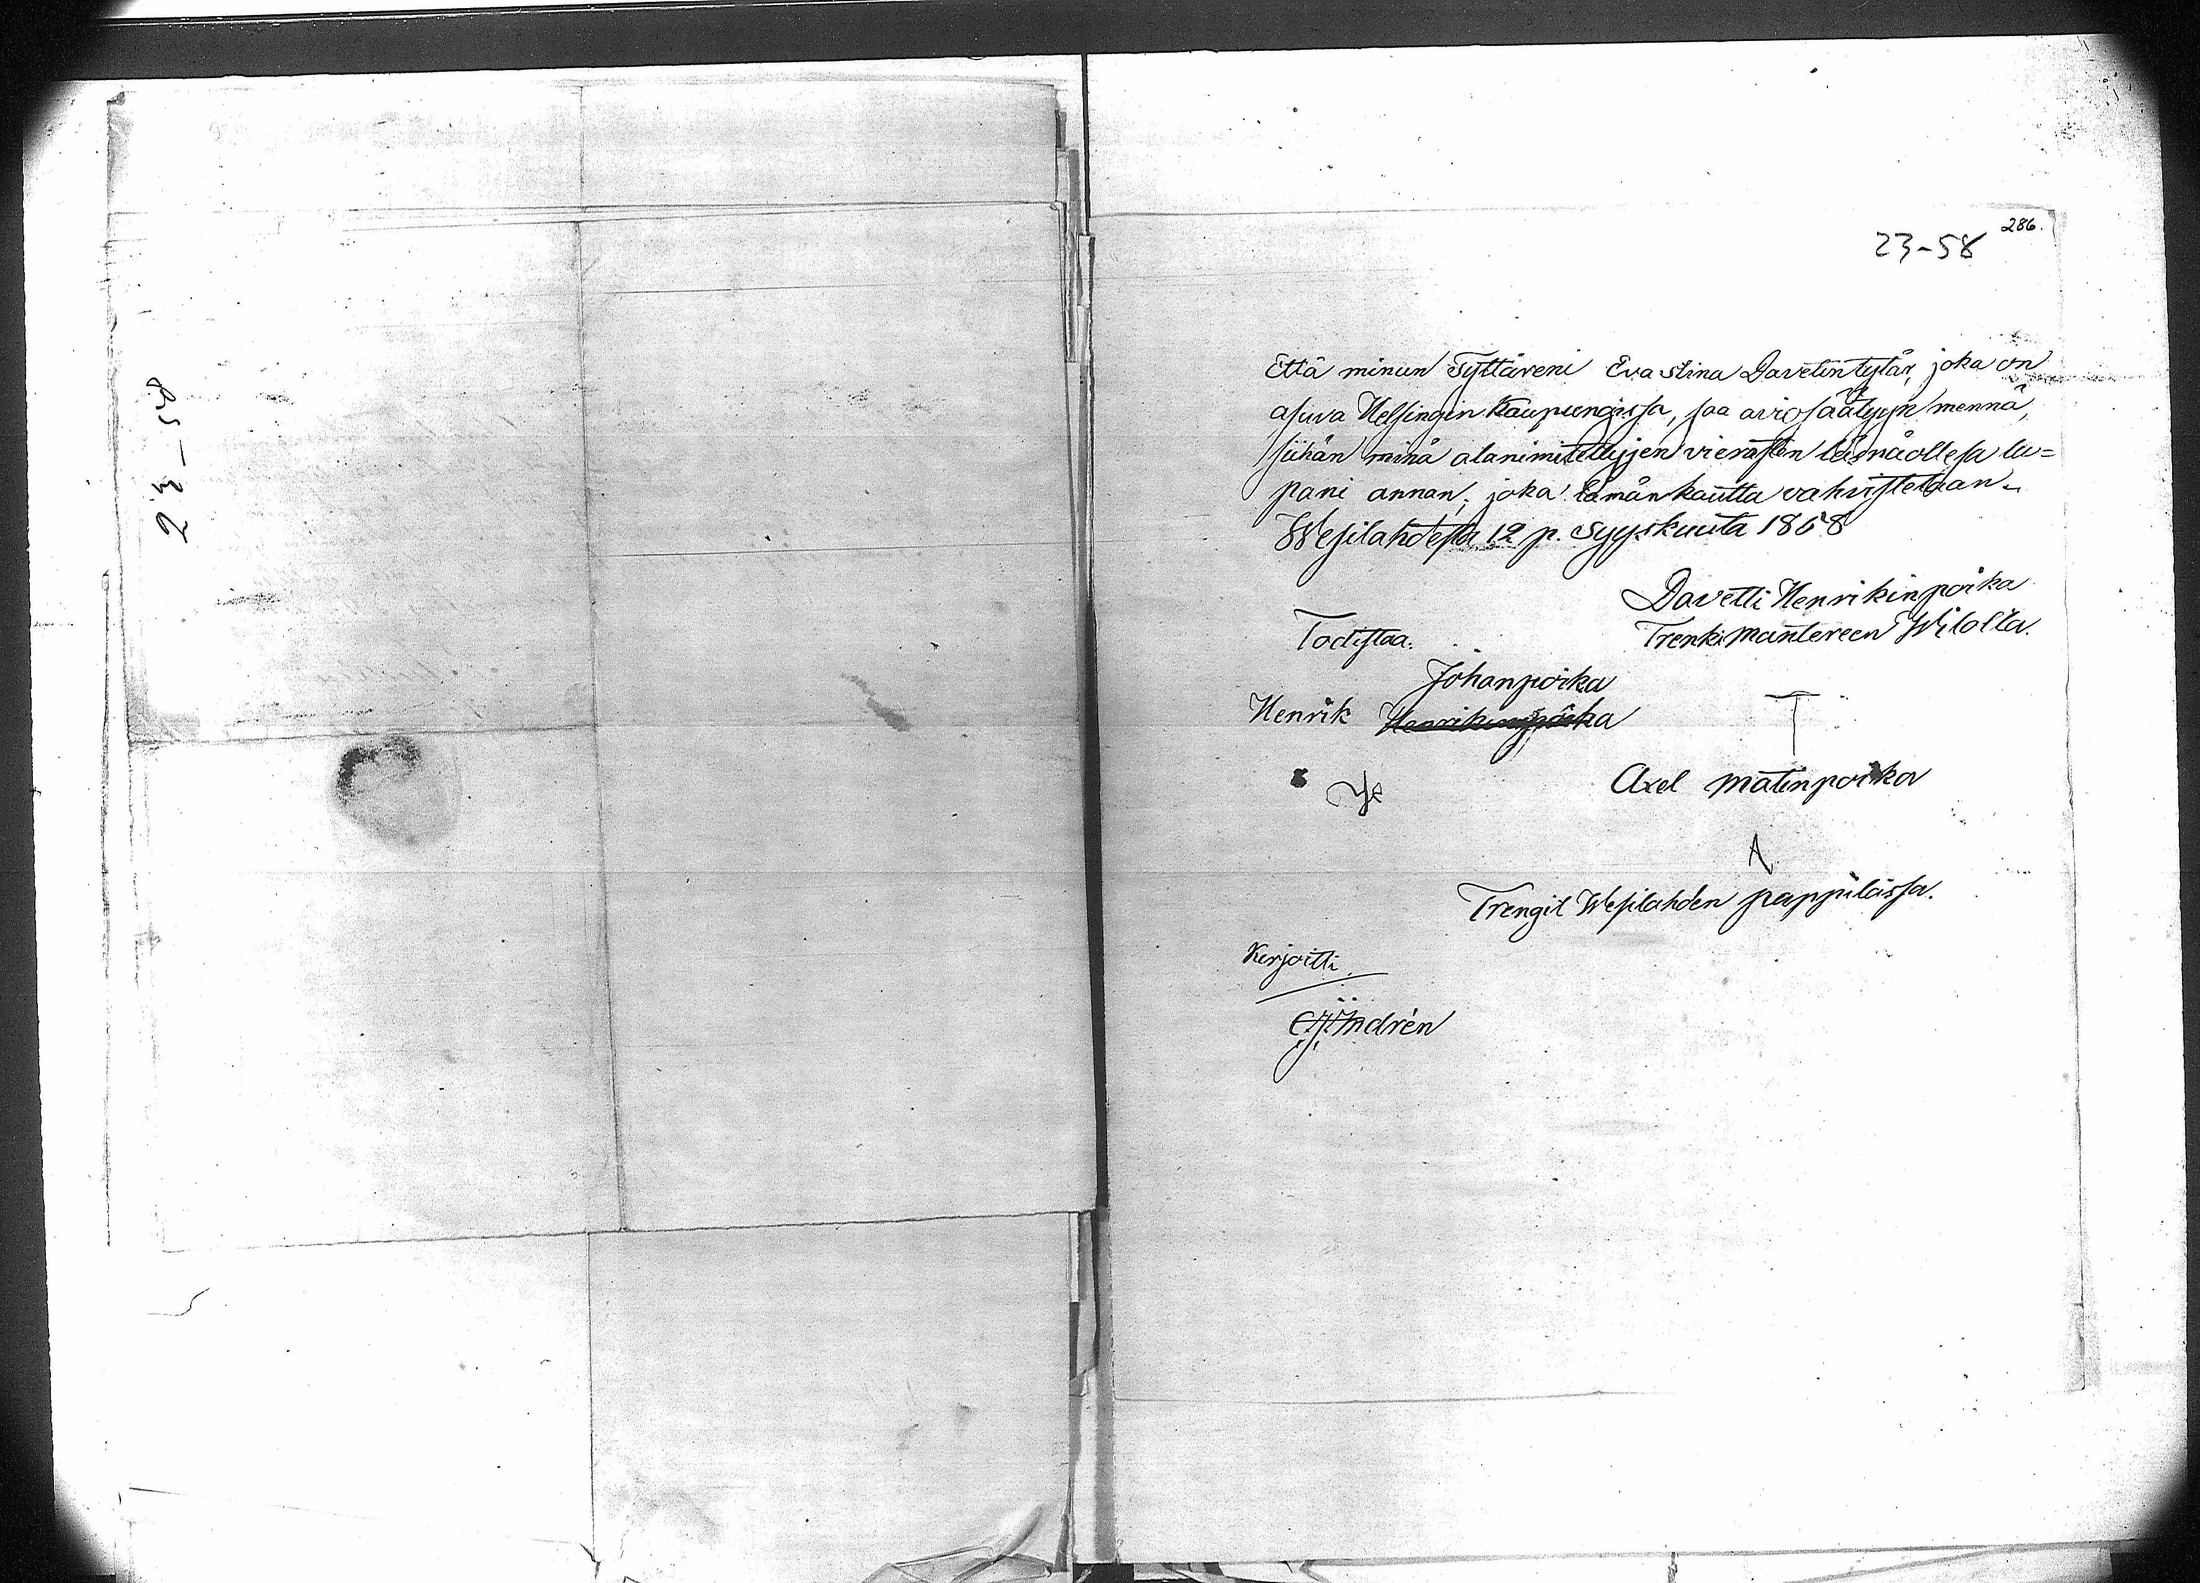 23-58
286.
23-58
Että minun Tyttäreni Eva Stina Davetintytär, joka on
asuva Helsingin kaupungissa, saa aviosäätyyn mennä,
siihän minä alanimitettyjen vierasten läsnäollesa lu=
pani annan, joka tämän kautta vahvistetaan.
Wesilahdesta 12 p. Syyskuuta 1858
Davetti Henrikinpoika
Trenki Mantereen Wilolta.
Todistaa:
Johanpoika
Henrik Henrikinpoika
Axel Matinpoika
Trengit Wesilahden pappilassa.
Kirjoitti